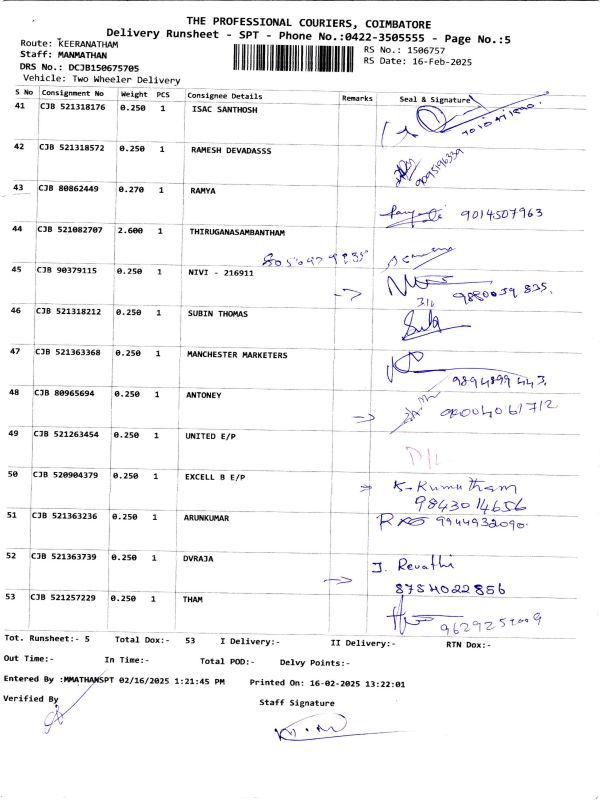 THE PROFESSIONAL COURIERS, COIMBATORE
Delivery Runsheet - SPT - Phone No.:0422-3505555 - Page No.:5
Route: KEERANATHAM
Staff: MANMATHAN
DRS No.: DCJB150675705
Vehicle: Two Wheeler Delivery
RS No.: 1506757
RS Date: 16-Feb-2025
S No Consignment No Weight PCS Consignee Details Remarks Seal & Signature
41 CJB 521318176 0.250 1 ISAC SANTHOSH
42 CJB 521318572 0.250 1 RAMESH DEVADASSS
43 CJB 80862449 0.270 1 RAMYA 9014507963
44 CJB 521082707 2.600 1 THIRUGANASAMBANTHAM
45 CJB 90379115 0.250 1 NIVI - 216911 9880039835.
46 CJB 521318212 0.250 1 SUBIN THOMAS
47 CJB 521363368 0.250 1 MANCHESTER MARKETERS 9894899443.
48 CJB 80965694 0.250 1 ANTONEY
49 CJB 521263454 0.250 1 UNITED E/P
50 CJB 520904379 0.250 1 EXCELL B E/P K-Kumutham
9843014656
51 CJB 521363236 0.250 1 ARUNKUMAR 9944932090.
52 CJB 521363739 0.250 1 DVRAJA J. Revathi
8754022856
53 CJB 521257229 0.250 1 THAM
Tot. Runsheet:- 5 Total Dox:- 53 I Delivery:- II Delivery:- RTN Dox:-
Out Time:- In Time:- Total POD:- Delvy Points:-
Entered By :MMATHANSPT 02/16/2025 1:21:45 PM Printed On: 16-02-2025 13:22:01
Verified By
Staff Signature